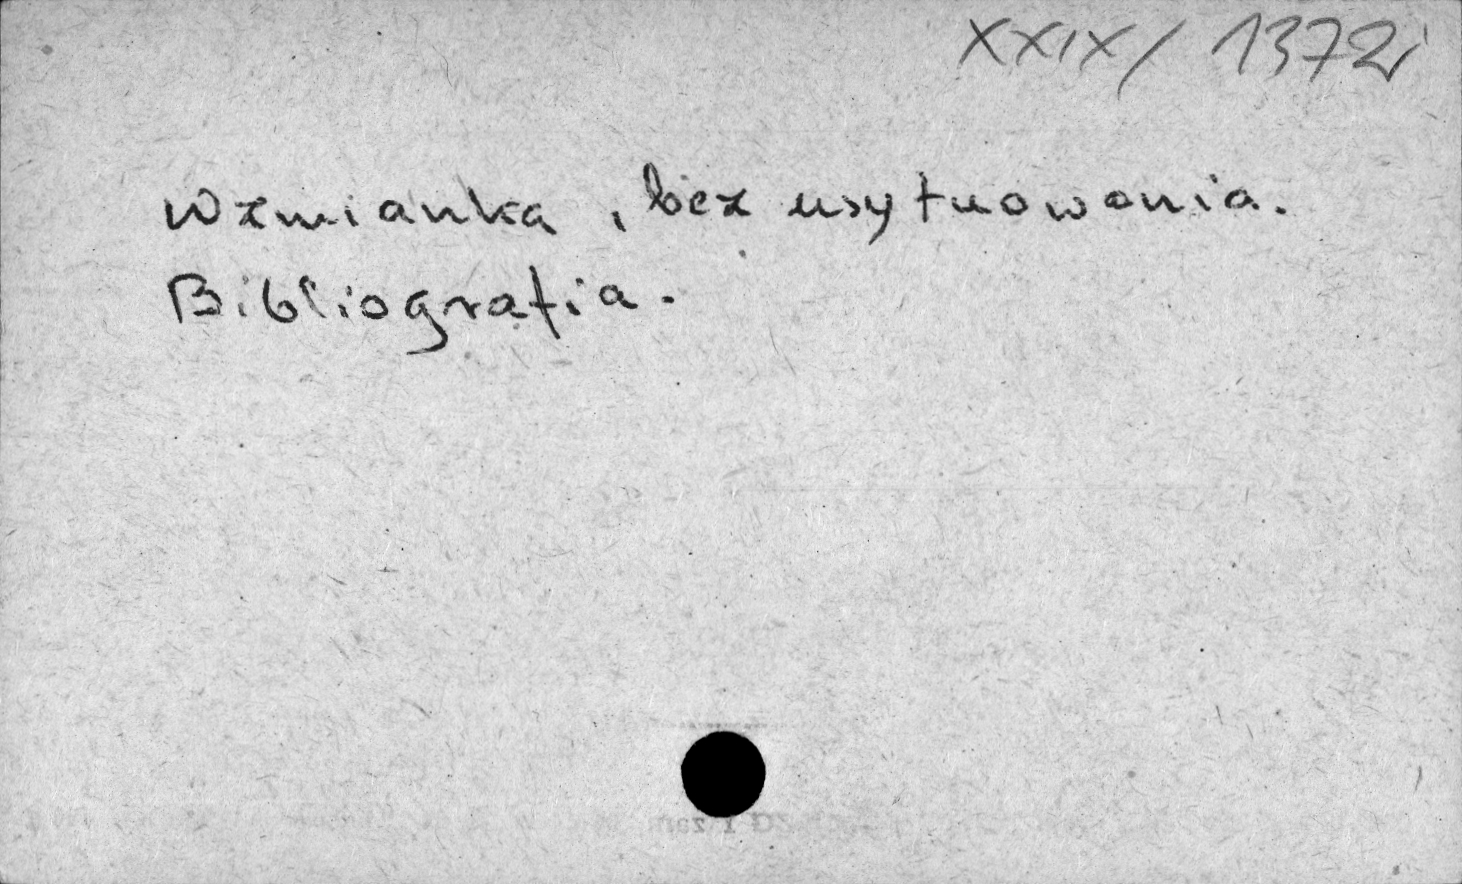 XXIX/1372i
Wzmianka, bez usytuowania.
Bibliografia.